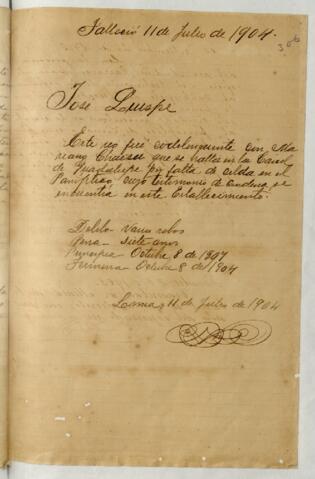 Falleció 11 de Julio de 1904.
306
José Quispe
Este reo fué codelincuente con Ma
riano que se halla en la Carcel
de Guadalupe por falta de celda en el
Panóptico, cuyo testimonio de condena se
encuentra en este establecimiento.
Delito varios robos
Pena siete años
Principia Octubre 8 de 1897
Termina Octubre 8 de 1904
Lima, 11 de Julio de 1904